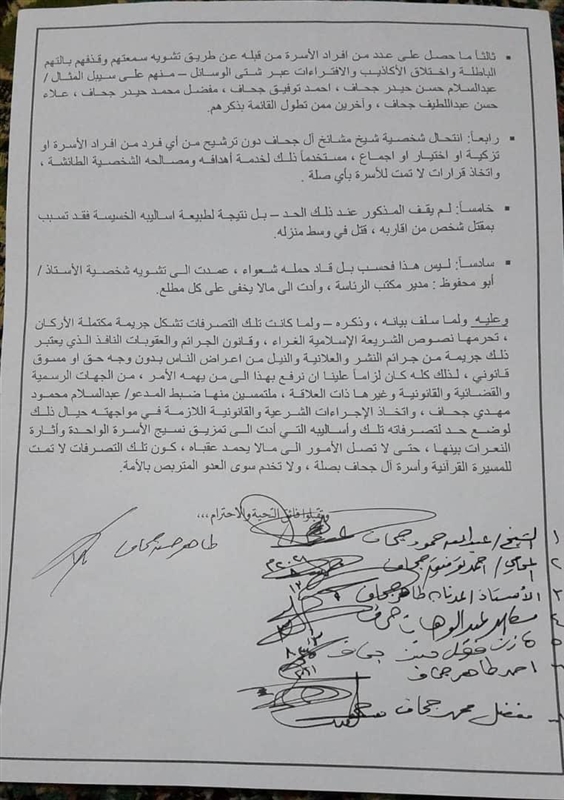 ▪ ثالثاً ما حصل على عدد من افراد الأسرة من قبله عن طريق تشويه سمعتهم وقذفهم بالتهم
الباطلة واختلاق الأكاذيب والافتراءات عبر شتى الوسائل – منهم على سبيل المثال /
عبدالسلام حسن حيدر جحاف ، احمد توفيق جحاف ، مفضل محمد حيدر جحاف ، علاء
حسن عبداللطيف جحاف ، وأخرين ممن تطول القائمة بذكرهم.
▪ رابعاً: انتحال شخصية شيخ مشائخ آل جحاف دون ترشيح من أي فرد من افراد الأسرة او
تزكية او اختيار او اجماع ، مستخدماً ذلك لخدمة أهدافه ومصالحه الشخصية الطائشة ،
واتخاذ قرارات لا تمت للأسرة بأي صلة .
▪ خامساً: لم يقف المذكور عند ذلك الحد – بل نتيجة لطبيعة اساليبه الخسيسة فقد تسبب
بمقتل شخص من اقاربه ، قتل في وسط منزله.
▪ سادساً: ليس هذا فحسب بل قاد حمله شعواء ، عمدت الى تشويه شخصية الأستاذ /
أبو محفوظ : مدير مكتب الرئاسة ، وأدت الى مالا يخفى على كل مطلع.
وعليه ولما سلف بيانه ، وذكره – ولما كانت تلك التصرفات تشكل جريمة مكتملة الأركان
، تحرمها نصوص الشريعة الإسلامية الغراء ، وقانون الجرائم والعقوبات النافذ الذي يعتبر
ذلك جريمة من جرائم النشر والعلانية والنيل من اعراض الناس بدون وجه حق او مسوق
قانوني ، لذلك كله كان لزاماً علينا ان نرفع بهذا الى من يهمه الأمر ، من الجهات الرسمية
والقضائية والقانونية وغيرها ذات العلاقة ، ملتمسين منها ضبط المدعو/ عبدالسلام محمود
مهدي جحاف ، واتخاذ الإجراءات الشرعية والقانونية اللازمة في مواجهته حيال ذلك
لوضع حد لتصرفاته تلك وأساليبه التي أدت الى تمزيق نسيج الأسرة الواحدة وأثارة
النعرات بينها ، حتى لا تصل الأمور الى مالا يحمد عقباه ، كون تلك التصرفات لا تمت
للمسيرة القرآنية وأسرة آل جحاف بصلة ، ولا تخدم سوى العدو المتربص بالأمة.
وتقبلوا فائق التحية والاحترام ,,,
١ الشيخ/ حمود جحاف
طاهر حسن جحاف
٢ احمد جحاف
٣ الأستاذ طاهر جحاف
٤ عبدالوهاب جحاف
٥ جحاف
احمد طاهر جحاف
مفضل محمد جحاف